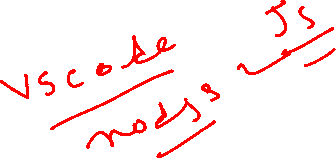 vscode
nodejs
JS